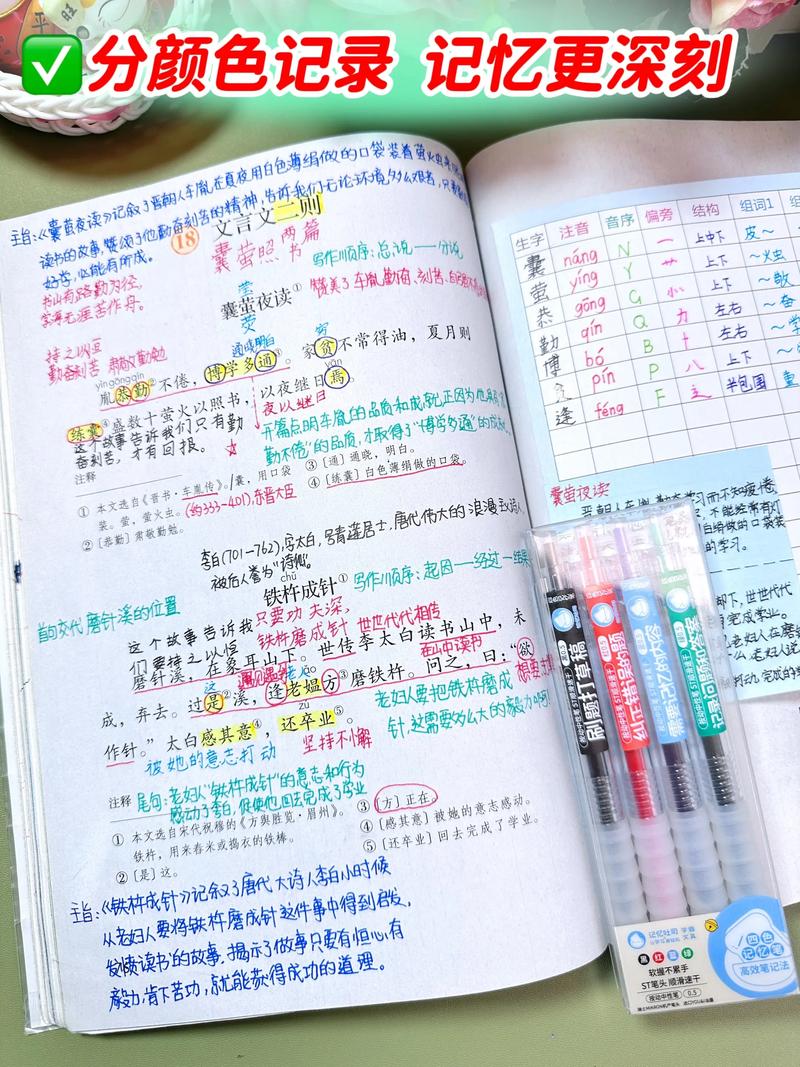 ✅分颜色记录 记忆更深刻
主旨:《囊萤夜读》记叙了晋朝人车胤在夏夜用白色薄绢做的口袋装着萤火虫
读书的故事,赞颂了他勤奋刻苦的精神,告诉我们无论环境多么艰苦,只要
好学,必能有所成。
书山有路勤为径,
学海无涯苦作舟。
18
文言文二则
囊萤照书
两篇
写作顺序:总说——分说
囊萤夜读①
赞美了车胤勤奋、刻苦、
持之以恒
勤奋刻苦
肃敬勤勉
通晓明白
穷
yíngōngqín
yān
胤恭勤②不倦,博学多通③。家贫不常得油,夏月则
练囊④盛数十萤火以照书,以夜继日焉。
夜以继日
这个故事告诉我们只有勤
奋刻苦,才有回报。
开篇点明车胤的品质和成就,正因为他具有
勤不倦”的品质,才取得了“博学多通”的成
注释
①本文选自《晋书·车胤传》。囊,用口袋
装。萤,萤火虫。
(约333-401),东晋大臣
②[恭勤]肃敬勤勉。
③[通]通晓,明白。
④[练囊]白色薄绢做的口袋。
李白(701-762),字太白,号青莲居士,唐代伟大的浪漫主义诗人,
被后人誉为“诗仙”。
chǔ
铁杵成针①
写作顺序:起因——经过——结果
首句交代磨针溪的位置
只要功夫深,
铁杵磨成针
世世代代相传
这个故事告诉我
们要持之以恒
在山中读书
磨针溪,在象耳山下。世传李太白读书山中,未
成,弃去。过是②溪,逢老媪方③磨铁杵。问之,曰:“欲
作针。”太白感其意④,还卒业⑤。
这
遇见
zú
想要
被她的意志打动
坚持不懈
老妇人要把铁杵磨成
针,这需要多么大的毅力
注释
尾句:老妇人“铁杵成针”的意志和行为
感动了李白,促使他回去完成了学业
①本文选自宋代祝穆的《方舆胜览·眉州》。
铁杵,用来舂米或捣衣的铁棒。
②[是]这。
③[方]正在。
④[感其意]被她的意志感动。
⑤[还卒业]回去完成了学业。
主旨:《铁杵成针》记叙了唐代大诗人李白小时候
从老妇人要将铁杵磨成针这件事中得到启发,
发愤读书的故事,揭示了做事只要有恒心,有
毅力,肯下苦功,就能获得成功的道理。
生字 注音 音序 偏旁 结构 组词1
囊 náng N 一 上中下 皮~
萤 yíng Y 艹 上下 ~火
恭 gōng G 㣺 上下
勤 qín Q 力 左右 ~奋
博 bó B 十 左右 ~学
贫 pín P 八 上下
逢 féng F 辶 半包围
囊萤夜读
刷题打草稿
纠正错误的题
需要记忆的内容
记录问题和答案
记忆吐司
学霸文具
黑 红 蓝 绿
软握不累手
ST笔头 顺滑速干
按动中性笔 0.5
四色
记忆笔
高效笔记法